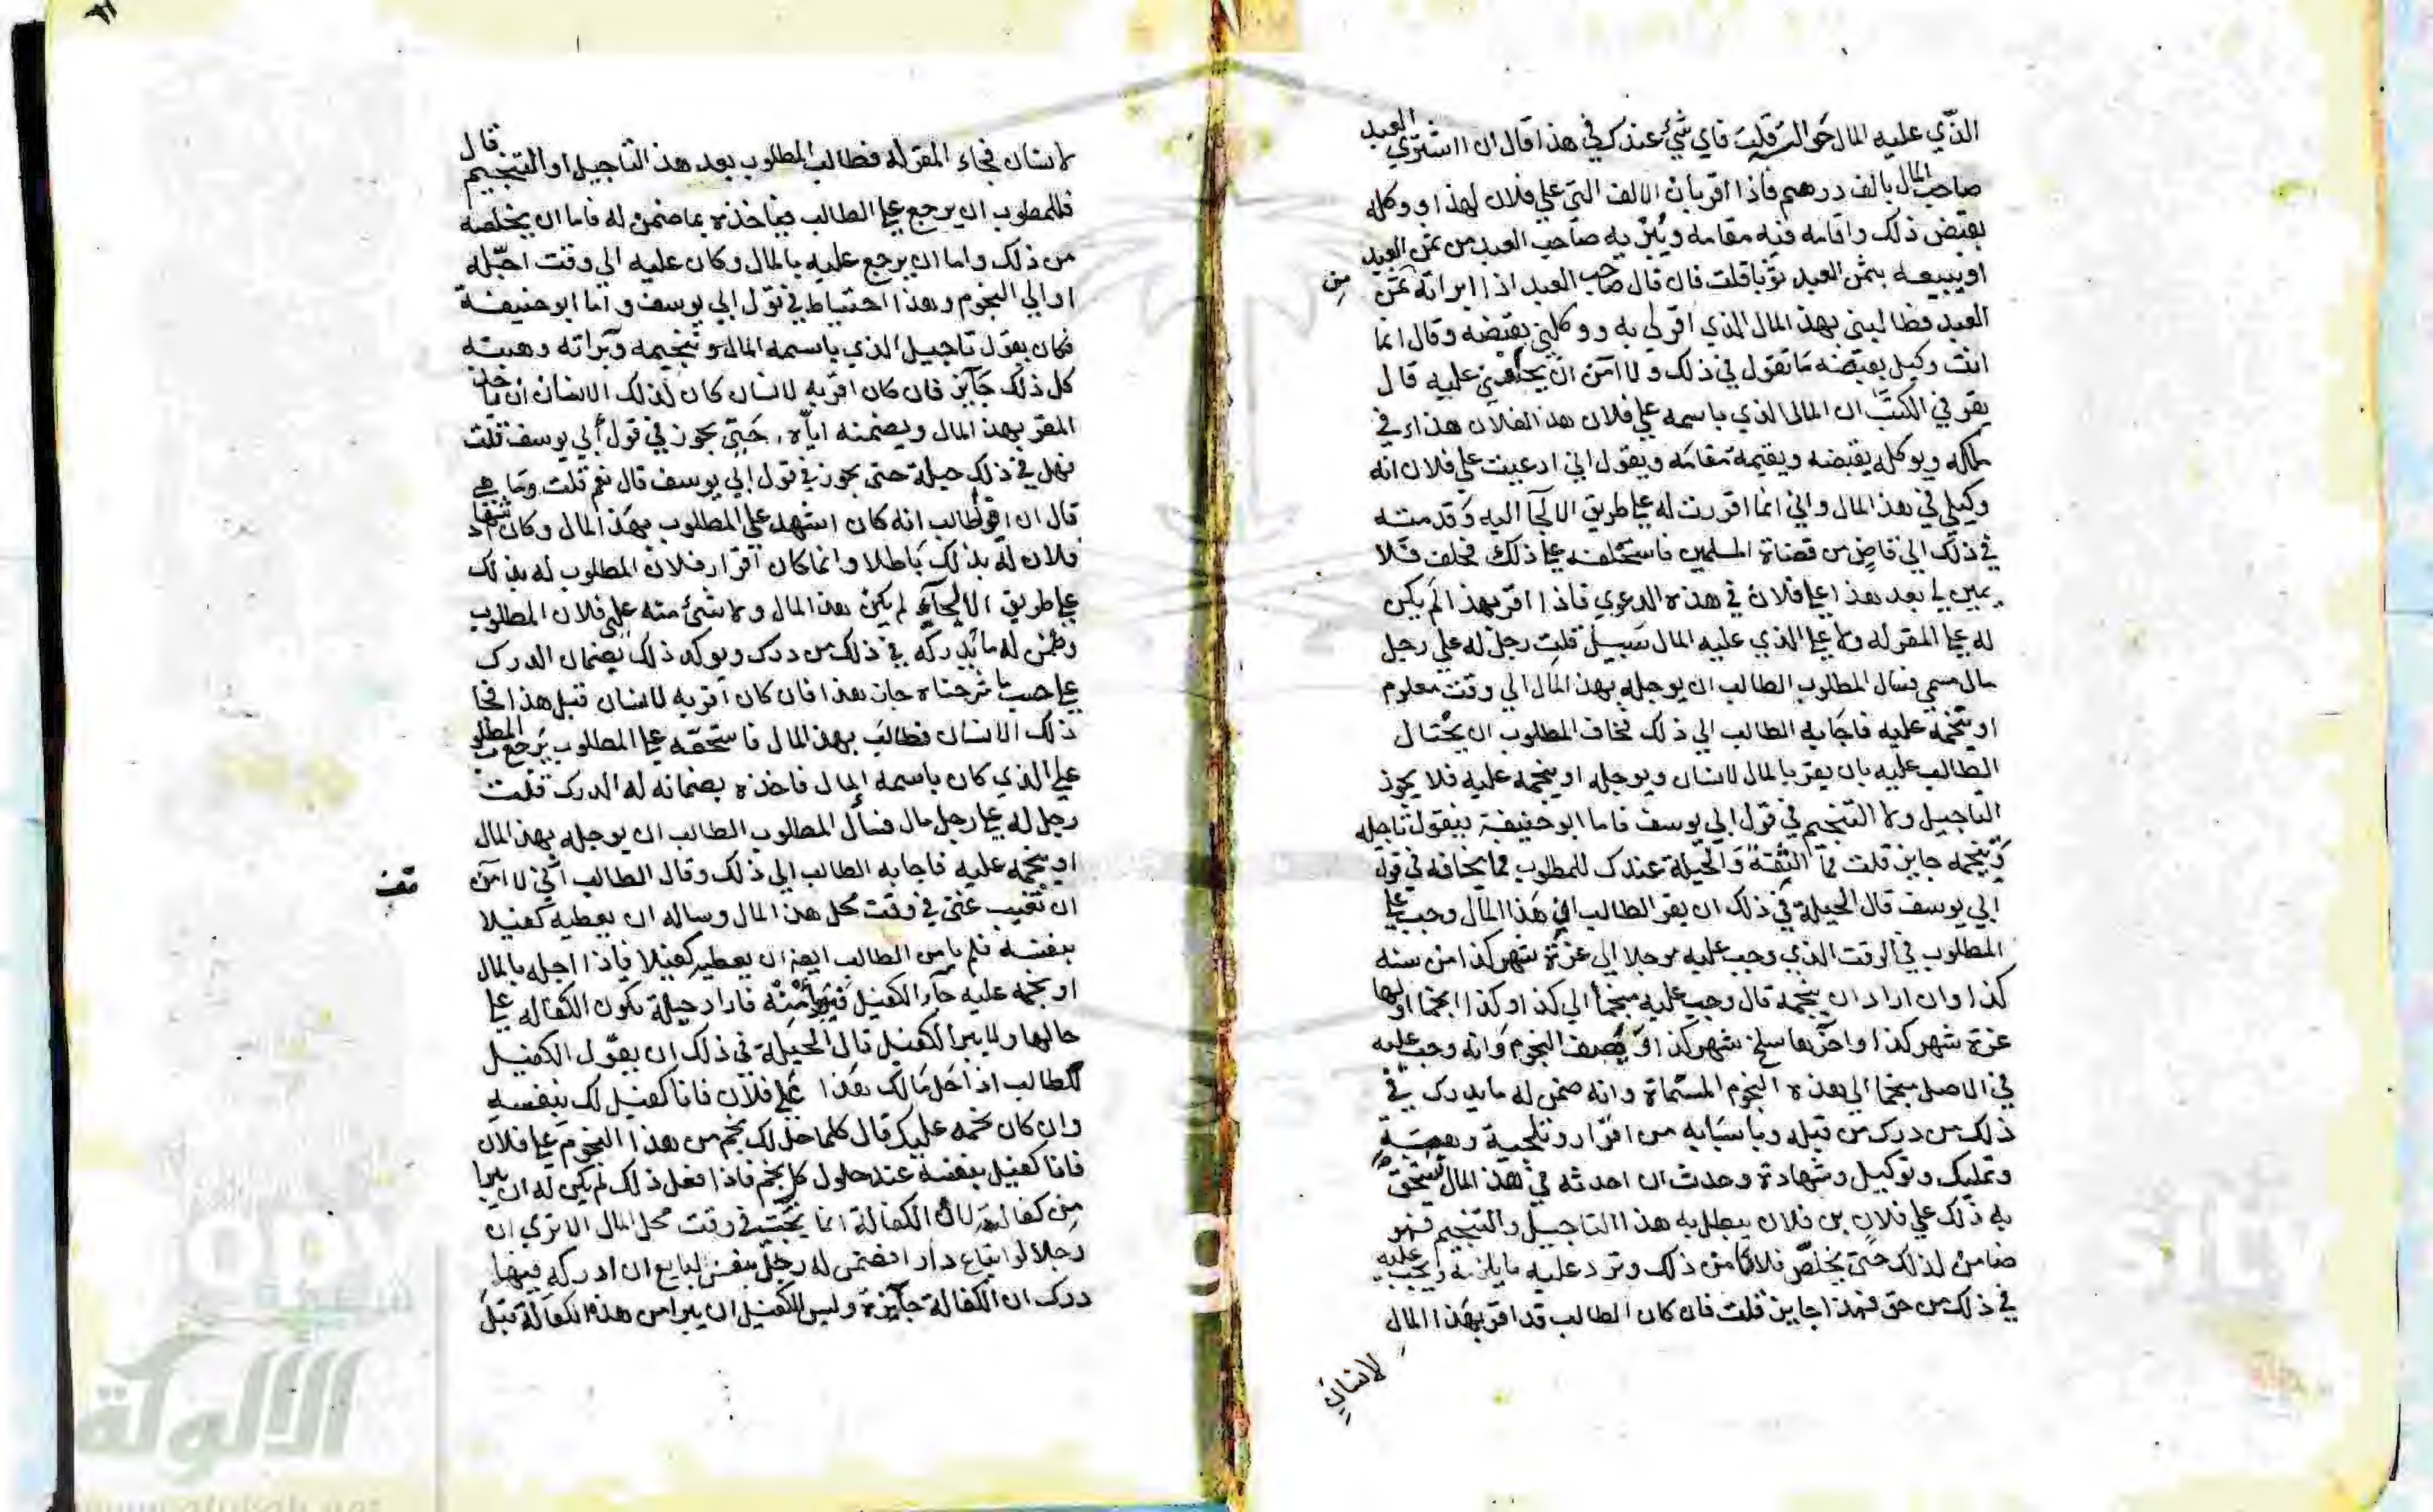 الذي عليه المال حوالة قلت فاي شيء عندك في هذا قال ان اشتري العبد
صاحب المال بالف درهم فاذا اقر بان الالف التي علي فلان لهذا ووكله
بقبض ذلك واقامه فيه مقامه ويبريه صاحب العبد من ثمن العبد
او يبيعه بثمن العبد ثوبا قلت فان قال صاحب العبد اذا ابراته من ثمن
العبد فطالبني بهذ المال الذي اقر لي به ووكلني بقبضه وقال انما
انت وكيل بقبضه ما تقول في ذلك ولا امن ان يحلفني عليه قال
يقر في الكتاب ان المال الذي باسمه علي فلان هذا لفلان هذا وفي
ملكه ويوكله بقبضه ويقيمه مقامه ويقول اني ادعيت علي فلان انه
وكيلي في هذ المال واني انما اقررت له علي طريق الالجا اليه وقدمته
في ذلك الي قاض من قضاة المسلمين فاستحلفته علي ذلك فحلف فلا
يمين لي بعد هذا علي فلان في هذه الدعوي فاذا اقر بهذا لم يكن
له علي المقر له ولا علي الذي عليه المال سبيل قلت رجل له علي رجل
مال مسمي فسال المطلوب الطالب ان يوجله بهذ المال الي وقت معلوم
او ينجمه عليه فاجابه الطالب الي ذلك فخاف المطلوب ان يحتال
الطالب عليه بان يقر بالمال لانسان ويوجله او ينجمه عليه فلا يجوز
التاجيل ولا التنجيم في قول ابي يوسف فاما ابو حنيفة فيقول تاجيله
وتنجيمه جايز قلت فما الثقة والحيلة عندك للمطلوب مما يخافه في قول
ابي يوسف قال الحيلة في ذلك ان يقر الطالب ان هذا المال وجب علي
المطلوب في الوقت الذي وجب عليه موجلا الي غرة شهر كذا من سنه
كذا وان اراد ان ينجمه قال وجب عليه منجما الي كذا وكذا نجما اولها
غرة شهر كذا واخرها سلخ شهر كذا او يصف النجوم وانه وجب عليه
في الاصل منجما الي هذه النجوم المسماة وانه ضمن له ما يدرك في
ذلك من درك من قبله وباسبابه من اقرار وتلجية وهبة
وتمليك وتوكيل وشهادة وحدث ان احدثه في هذ المال يستحق
به ذلك علي فلان بن فلان يبطل به هذا التاجيل والتنجيم فهو
ضامن لذلك حتي يخلص فلانا من ذلك وترد عليه ما يلزمه ويجب عليه
في ذلك من حق فهذا جايز قلت فان كان الطالب قد اقر بهذا المال
لانسان
لانسان فجاء المقر له فطالب المطلوب بعد هذ التاجيل او التنجيم قال
فللمطلوب ان يرجع علي الطالب فياخذه بما ضمن له فاما ان يخلصه
من ذلك واما ان يرجع عليه بالمال وكان عليه الي وقت اجله
او الي النجوم وهذا احتياط في قول ابي يوسف واما ابو حنيفة
فكان يقول تاجيل الذي باسمه المال وتنجيمه وبراته وهبته
كل ذلك جايز فان كان اقر به لانسان كان لذلك الانسان ان ياخذ
المقر بهذ المال ويضمنه اياه حتي يجوز في قول ابي يوسف قلت
فهل في ذلك حيلة حتي يجوز في قول ابي يوسف قال نعم قلت وما هي
قال ان اقر الطالب انه كان اشهد علي المطلوب بهذ المال وكان
فلان له بذلك باطلا وانما كان اقرار فلان المطلوب له بذلك
علي طريق الالجاء لم يكن هذ المال ولا شئ منه علي فلان المطلوب
وضمن له ما يدركه في ذلك من درك ويوكد ذلك بضمان الدرك
علي حسب ما شرحناه جاز هذا فان كان اقر به لانسان قبل هذا فجا
ذلك الانسان فطالب بهذ المال فاستحقه علي المطلوب يرجع المطلوب
علي الذي كان باسمه المال فاخذه بضمانه له الدرك قلت
رجل له علي رجل مال فسأل المطلوب الطالب ان يوجله بهذ المال
او ينجمه عليه فاجابه الطالب الي ذلك وقال الطالب انني لا امن
ان تغيب عني في وقت محل هذ المال وساله ان يعطيه كفيلا
بنفسه فلم يامن الطالب ايضا ان يعطيه كفيلا فاذا اجله بالمال
او نجمه عليه جاز الكفيل فاراد حيلة تكون الكفاله علي
حالها ولا يبرا الكفيل قال الحيلة في ذلك ان يقول الكفيل
للطالب اذا حل مالك هذا علي فلان فانا كفيل لك بنفسه
وان كان نجمه عليك قال كلما حل لك نجم من هذا النجوم علي فلان
فانا كفيل بنفسه عند حلول كل نجم فاذا فعل ذلك لم يكن له ان يبرا
من كفالته لان الكفالة انما يجب في وقت محل المال الا تري ان
رجلا لو ابتاع دارا فضمن له رجل بنفس البايع ان ادركه فيها
درك ان الكفالة جايزة وليس للكفيل ان يبرا من هذه الكفالة قبل
الألوكة
www.alukah.net